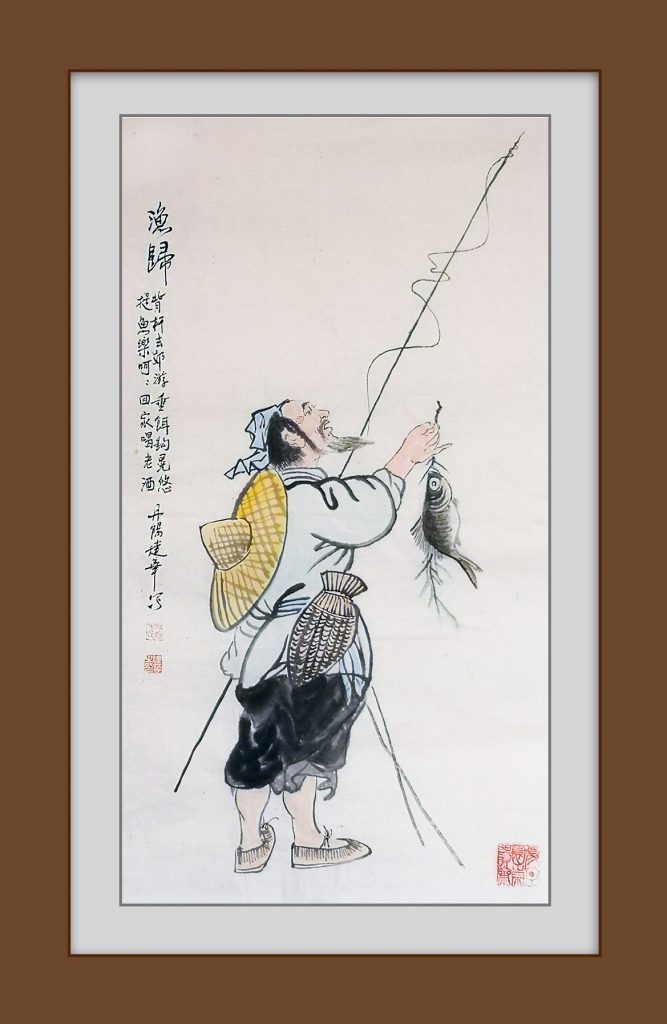 漁歸
背杆去郊游垂餌鈎晃悠
提魚樂呵〻回家喝老酒
丹陽 華写